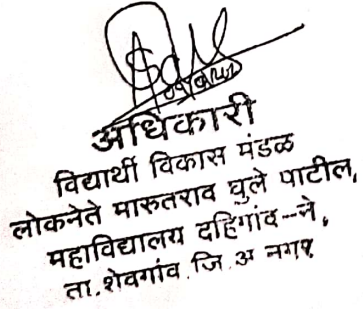 अधिकारी
विद्यार्थी विकास मंडळ
लोकनेते मारुतराव घुले पाटील,
महाविद्यालय दहिगांव-ने,
ता. शेवगांव. जि. अ नगर